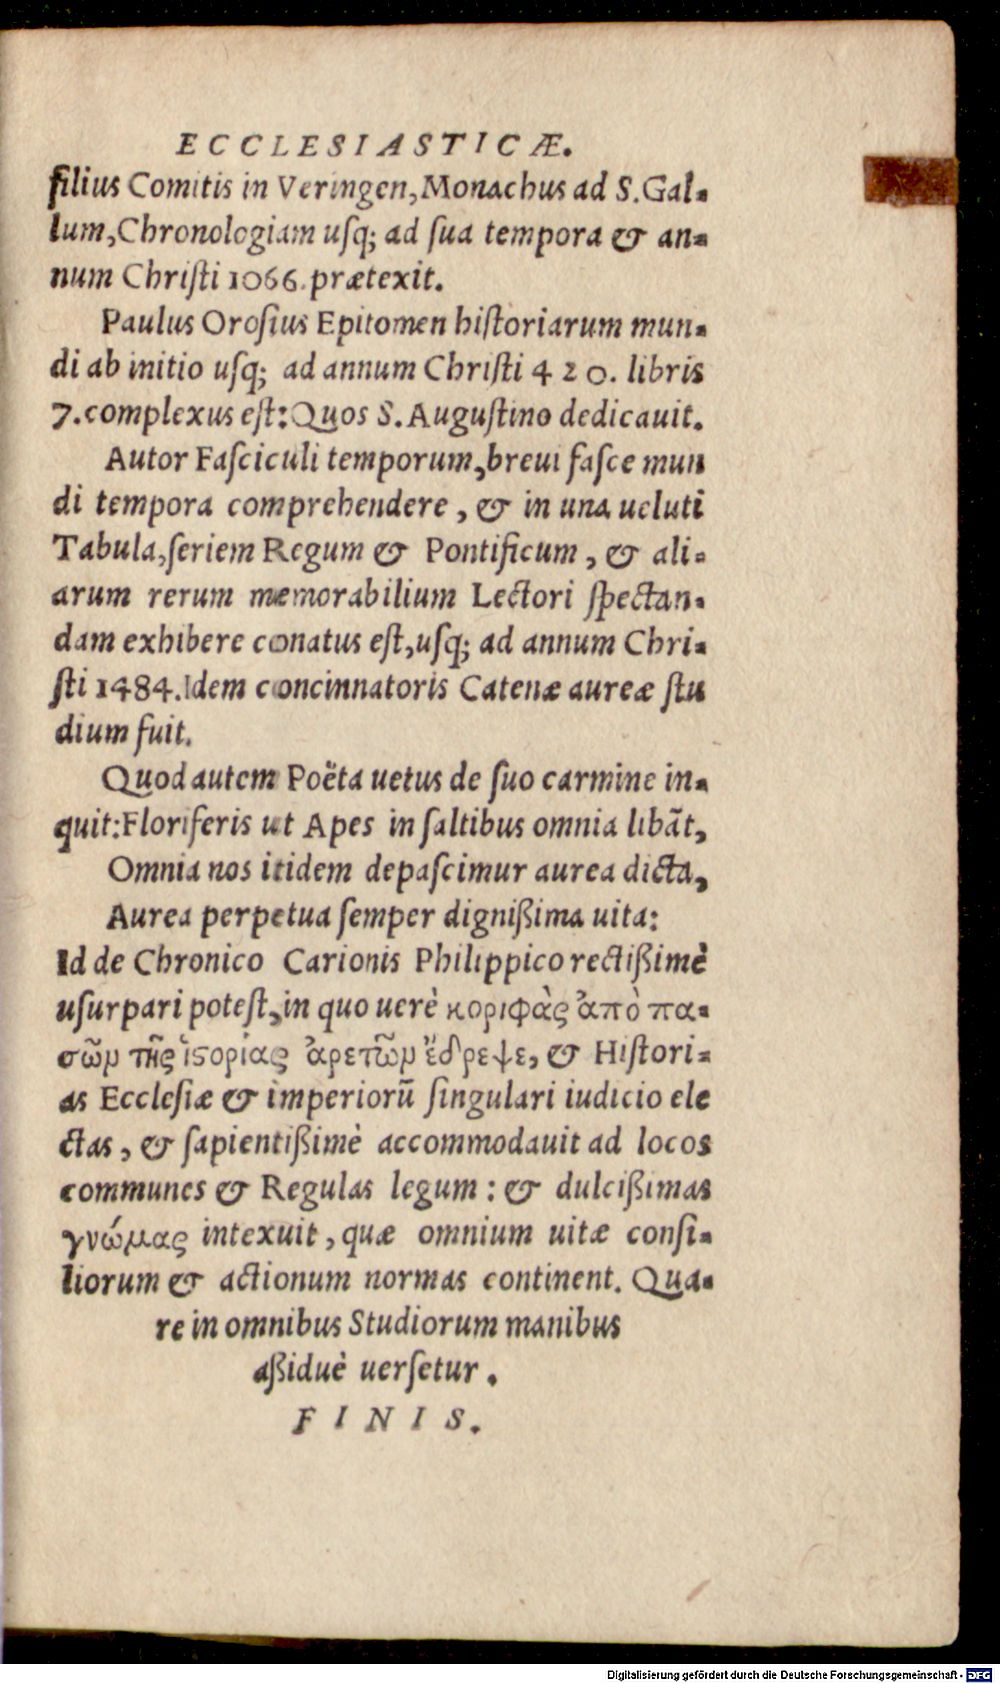 ECCLESIASTICÆ.
filius Comitis in Veringen, Monachus ad S. Gal-
lum, Chronologiam uſq; ad ſua tempora & an-
num Chriſti 1066. prætexit.
Paulus Oroſius Epitomen hiſtoriarum mun-
di ab initio uſq; ad annum Chriſti 420. libris
7. complexus eſt: Quos S. Auguſtino dedicauit.
Autor Faſciculi temporum, breui faſce mun
di tempora comprehendere, & in una ueluti
Tabula, ſeriem Regum & Pontificum, & ali-
arum rerum memorabilium Lectori ſpectan-
dam exhibere conatus eſt, uſq; ad annum Chri-
ſti 1484. Idem concinnatoris Catenæ aureæ ſtu
dium fuit.
Quod autem Poëta uetus de ſuo carmine in-
quit: Floriferis ut Apes in ſaltibus omnia libãt,
Omnia nos itidem depaſcimur aurea dicta,
Aurea perpetua ſemper dignißima uita:
Id de Chronico Carionis Philippico rectißimè
uſurpari poteſt, in quo uerè κοριφὰς ἀπὸ πα-
σῶμ τῆς ἱϛορίας ἀρετῶμ ἔδρεψε, & Hiſtori-
as Eccleſiæ & imperiorũ ſingulari iudicio ele
ctas, & ſapientißimè accommodauit ad locos
communes & Regulas legum: & dulcißimas
γνώμας intexuit, quæ omnium uitæ conſi-
liorum & actionum normas continent. Qua-
re in omnibus Studiorum manibus
aßiduè uerſetur.
FINIS.
Digitalisierung gefördert durch die Deutsche Forschungsgemeinschaft - DFG